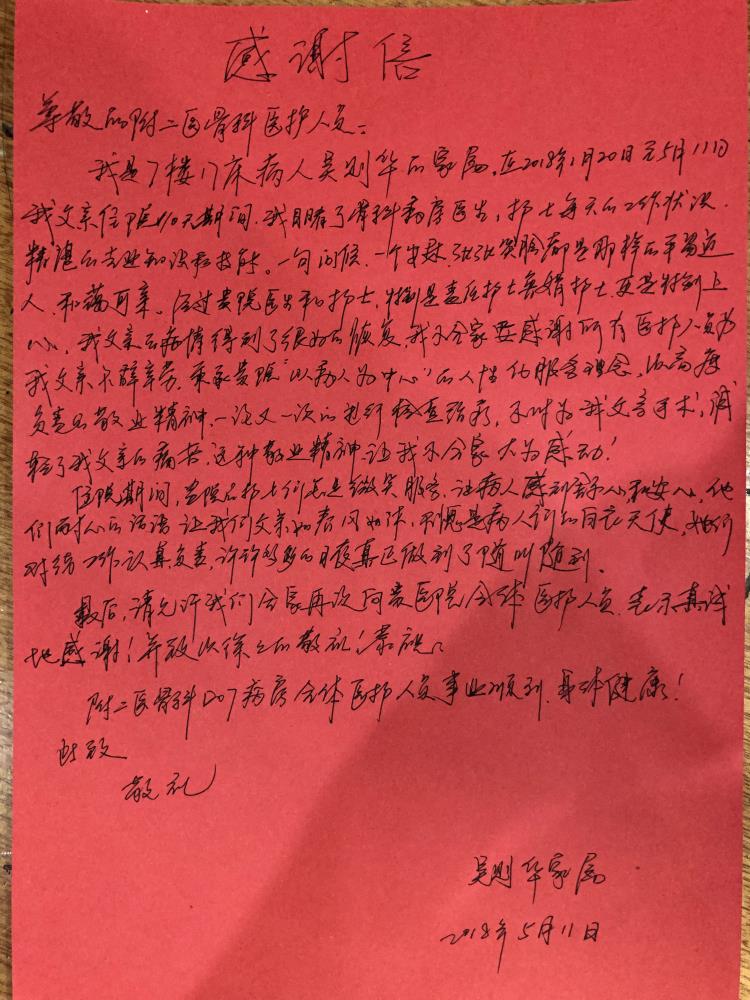 感谢信
尊敬的附二医骨科医护人员：
我是7楼17床病人吴则华的家属，在2018年1月20日至5月11日
我父亲住院110天期间，我目睹了骨科病房医生，护士每天的工作状况，
精湛的专业知识和技能。一句问候，一个安慰，张张笑脸都是那样的平易近
人，和蔼可亲。经过贵院医生和护士，特别是责任护士 护士，更是特别上
心，我父亲的病情得到了很好的恢复，我万分家要感谢所有医护人员为
我父亲不辞辛劳，秉承贵院“以病人为中心”的人性化服务理念，以高度
负责的敬业精神，一次又一次的进行检查治疗，及时为我父亲手术，减
轻了我父亲的痛苦，这种敬业精神，让我万分家大为感动！
住院期间，贵院的护士们总是微笑服务，让病人感到舒心和安心，他
们耐心的话语让我们父亲如春风如沐，不愧是病人们的白衣天使，她们
对待工作认真负责，许许多多的日夜真正做到了随叫随到。
最后，请允许我们全家再次向贵医院全体医护人员，表示真诚
地感谢！并致以深深的敬礼！恭祝：
附二医骨科207病房全体医护人员事业顺利，身体健康！
此致
敬礼
吴则华家属
2018年5月11日